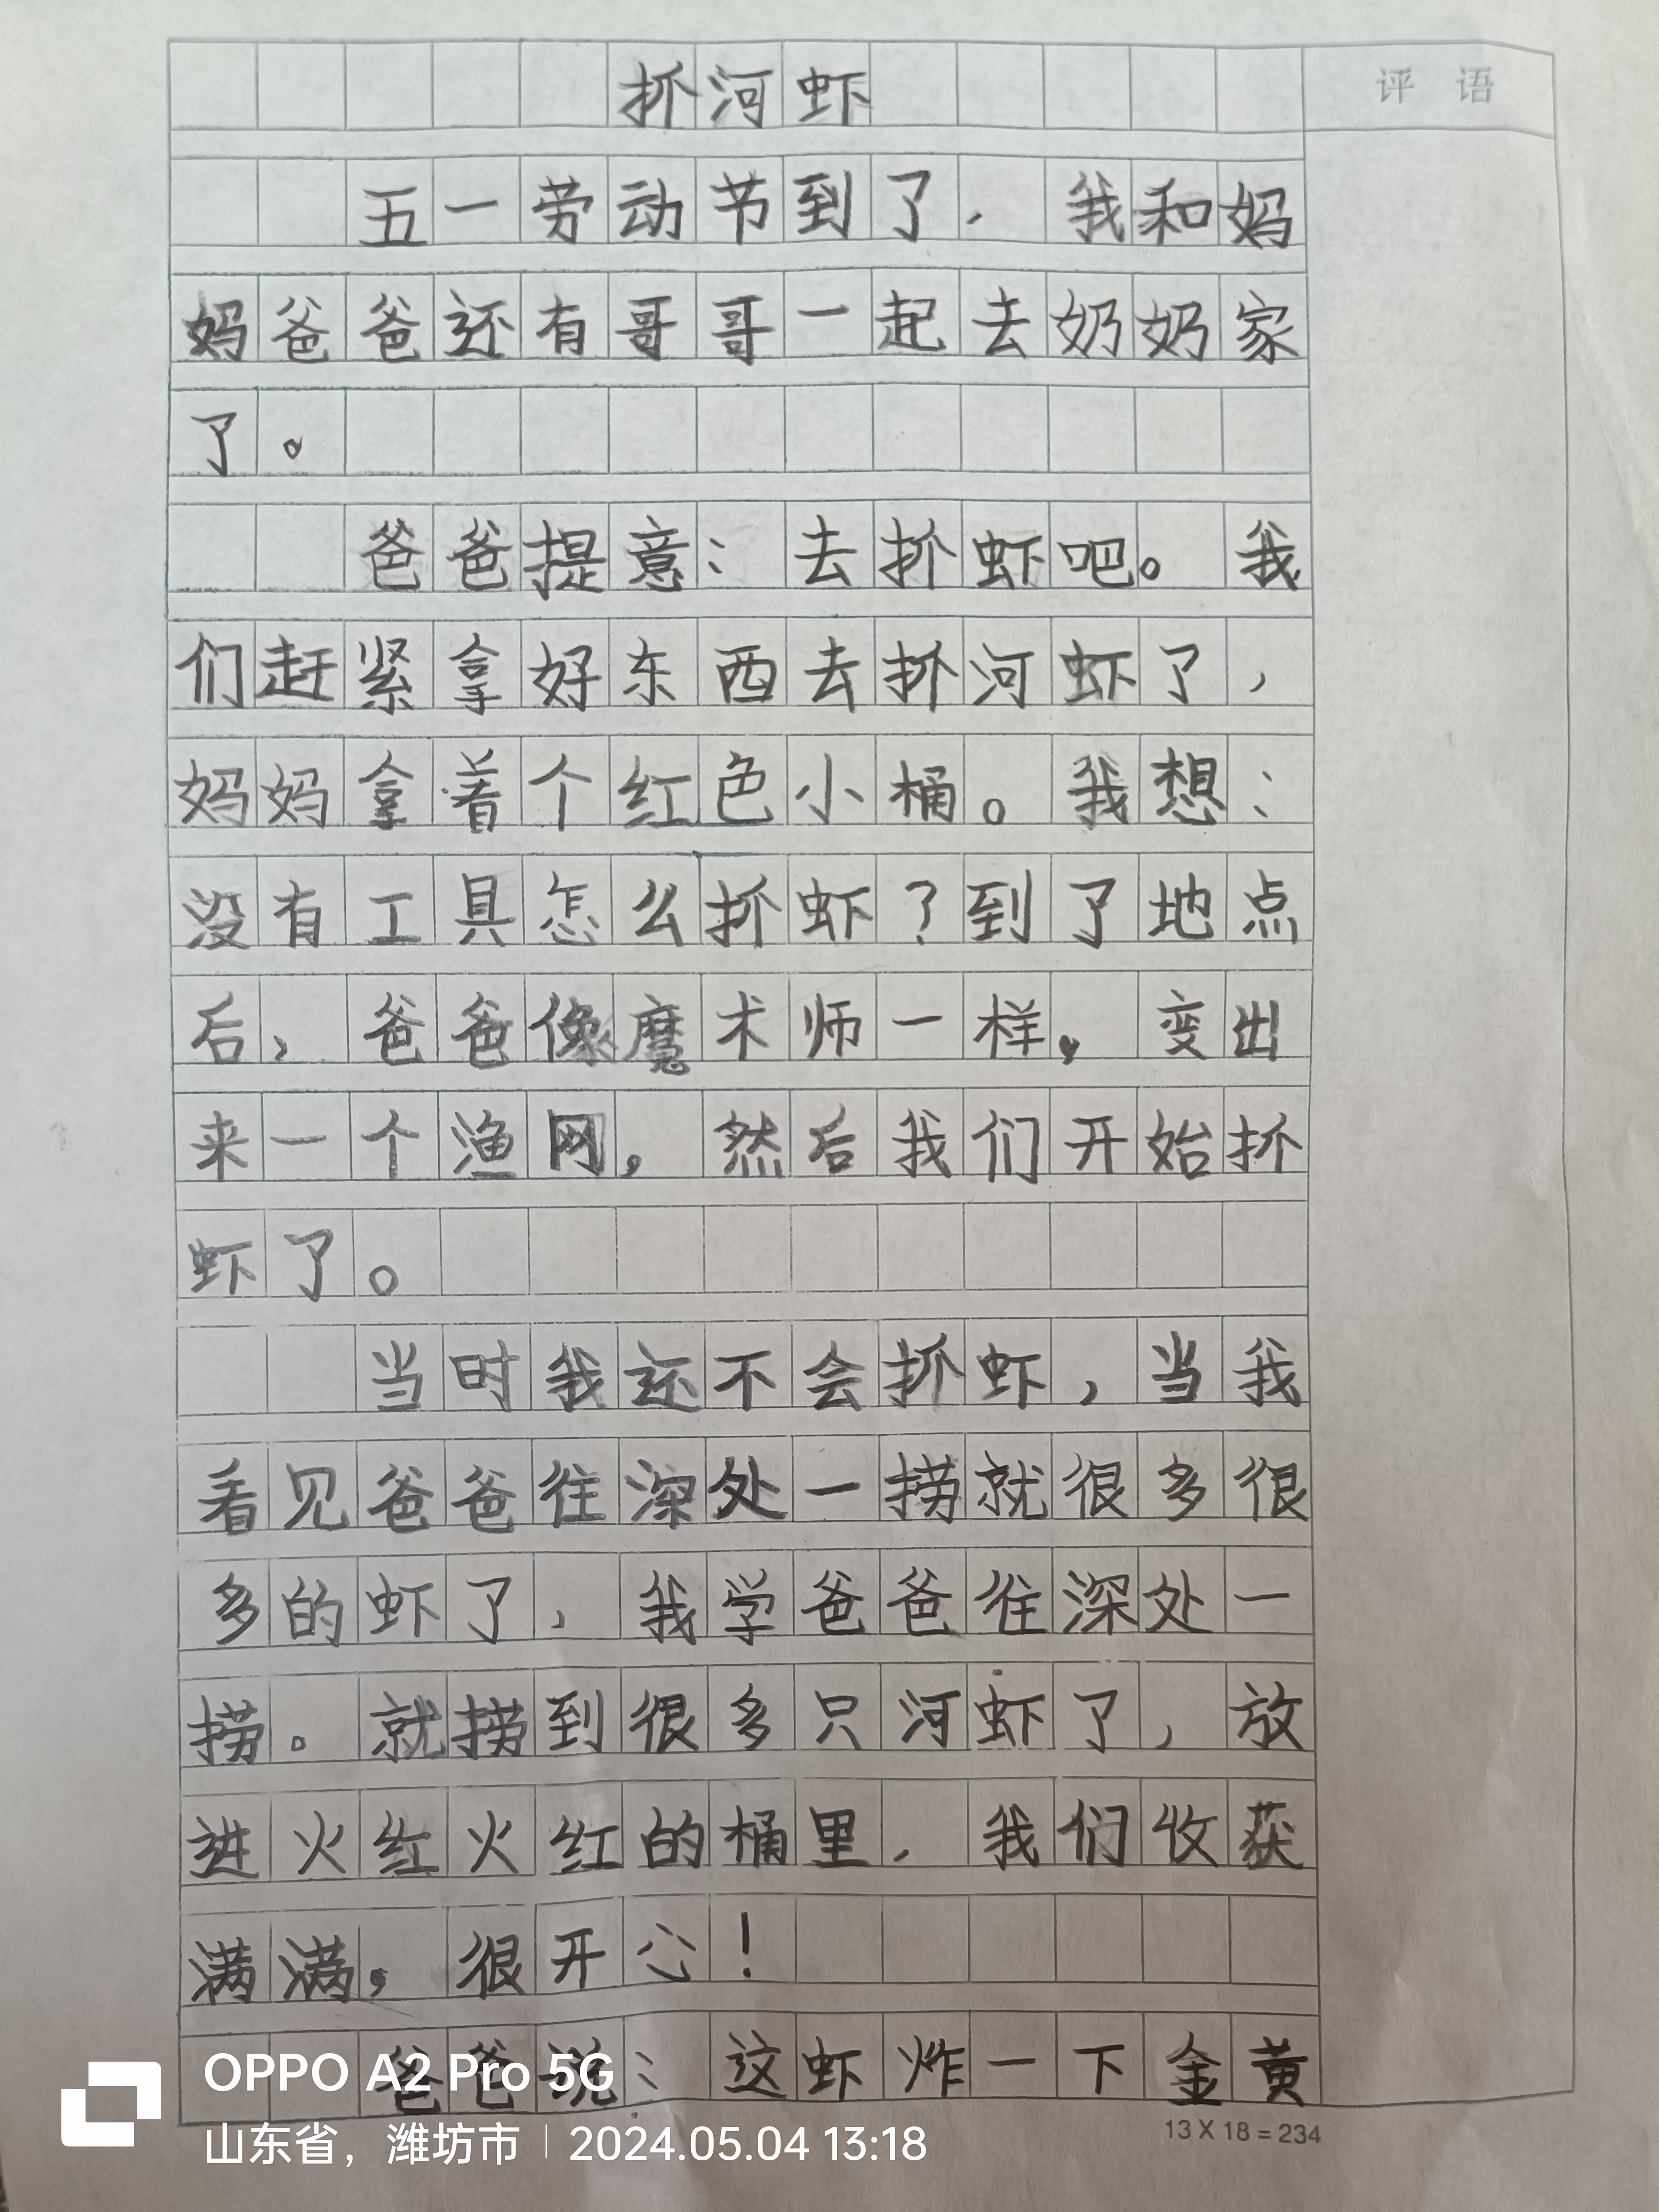 抓河虾
评 语
五一劳动节到了，我和妈
妈爸爸还有哥哥一起去奶奶家
了。
爸爸提意：去抓虾吧。我
们赶紧拿好东西去抓河虾了，
妈妈拿着个红色小桶。我想：
没有工具怎么抓虾？到了地点
后，爸爸像魔术师一样，变出
来一个渔网，然后我们开始抓
虾了。
当时我还不会抓虾，当我
看见爸爸往深处一捞就很多很
多的虾了，我学爸爸往深处一
捞。就捞到很多只河虾了，放
进火红火红的桶里，我们收获
满满，很开心！
爸爸说：这虾炸一下金黄
13 X 18 = 234
OPPO A2 Pro 5G
山东省，潍坊市 | 2024.05.04 13:18